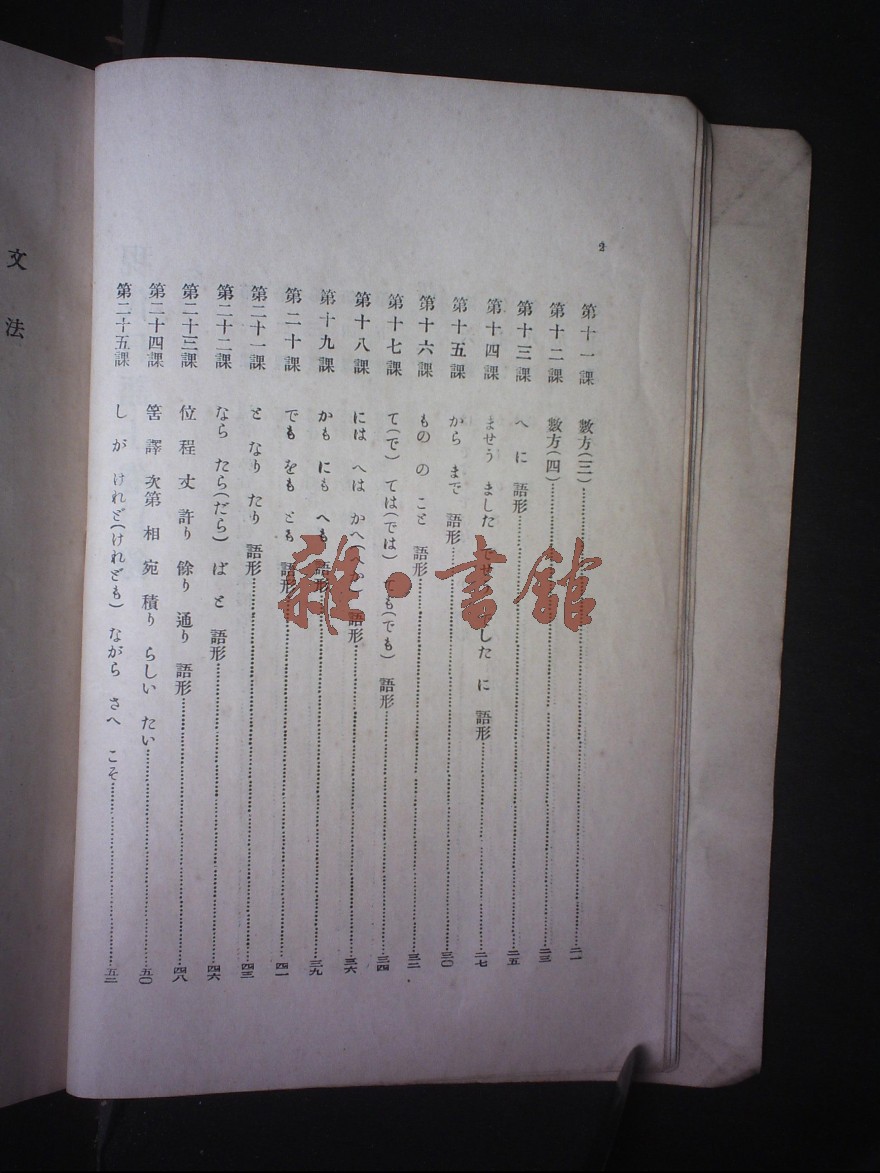 2
第十一課 數方(三)……二一
第十二課 數方(四)……二三
第十三課 へ に 語形……二五
第十四課 ませう ました でせ した に 語形……二七
第十五課 から まで 語形……三〇
第十六課 もの の こと 語形……三二
第十七課 て(で) ては(では) ても(でも) 語形……三四
第十八課 には へは かへ 語形……三六
第十九課 かも にも へも 語形……三九
第二十課 でも をも とも 語形……四一
第二十一課 と なり たり 語形……四三
第二十二課 なら たら(だら) ば と 語形……四六
第二十三課 位 程 丈 許り 餘り 通り 語形……四八
第二十四課 筈 譯 次第 相 宛 積り らしい たい……五〇
第二十五課 し が けれど(けれども) ながら さへ こそ……五二
文法
雜·書館